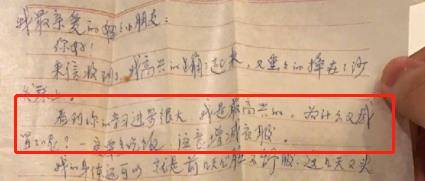 我最亲爱的好小朋友：
你好！
来信收到，我高兴的蹦起来，又重重的摔在了沙
看到你的学习进步很大，我是最高兴的，为什么又感
冒了呢？一定要多吃饭，注意增减衣服。
我的身体还可以，只是前几天